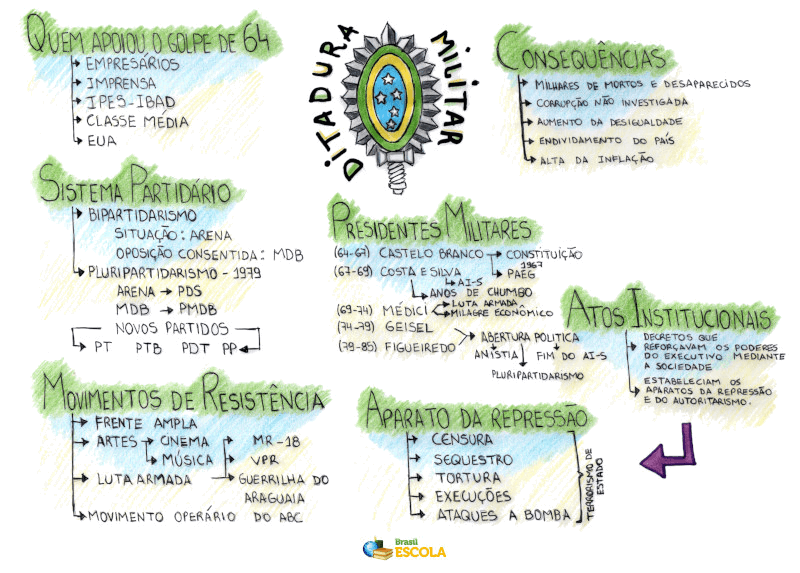 DITADURA MILITAR
QUEM APOIOU O GOLPE DE 64
EMPRESÁRIOS
IMPRENSA
IPES-IBAD
CLASSE MÉDIA
EUA
CONSEQUÊNCIAS
MILHARES DE MORTOS E DESAPARECIDOS
CORRUPÇÃO NÃO INVESTIGADA
AUMENTO DA DESIGUALDADE
ENDIVIDAMENTO DO PAÍS
ALTA DA INFLAÇÃO
SISTEMA PARTIDÁRIO
BIPARTIDARISMO
SITUAÇÃO: ARENA
OPOSIÇÃO CONSENTIDA: MDB
PLURIPARTIDARISMO - 1979
ARENA → PDS
MDB → PMDB
NOVOS PARTIDOS
PT PTB PDT PP
PRESIDENTES MILITARES
(64-67) CASTELO BRANCO → CONSTITUIÇÃO
1967
PAEG
(67-69) COSTA E SILVA
AI-5
ANOS DE CHUMBO
(69-74) MÉDICI
LUTA ARMADA
MILAGRE ECONÔMICO
(74-79) GEISEL
(79-85) FIGUEIREDO
ABERTURA POLITICA
ANISTIA
FIM DO AI-5
PLURIPARTIDARISMO
ATOS INSTITUCIONAIS
DECRETOS QUE
REFORÇAVAM OS PODERES
DO EXECUTIVO MEDIANTE
A SOCIEDADE
ESTABELECIAM OS
APARATOS DA REPRESSÃO
E DO AUTORITARISMO.
MOVIMENTOS DE RESISTÊNCIA
FRENTE AMPLA
ARTES → CINEMA
MÚSICA
LUTA ARMADA
MR-18
VPR
GUERRILHA DO
ARAGUAIA
MOVIMENTO OPERÁRIO DO ABC
APARATO DA REPRESSÃO
CENSURA
SEQUESTRO
TORTURA
EXECUÇÕES
ATAQUES A BOMBA
TERRORISMO DE
ESTADO
Brasil
ESCOLA